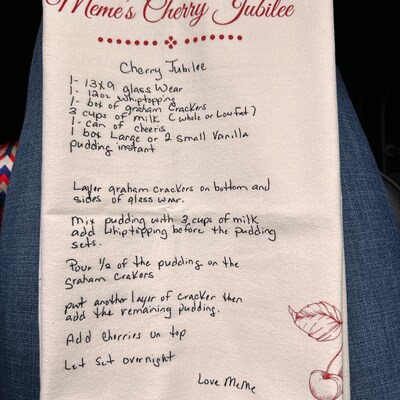 Meme's Cherry Jubilee
Cherry Jubilee
1- 13x9 glass Wear
1- 12oz whiptopping
1- box of graham crackers
3 cups of milk (whole or Low fat)
1- can of cheeris
1 box Large or 2 small Vanilla
pudding instant
Layer graham crackers on bottom and
sides of glass wear.
Mix pudding with 3 cups of milk
add whiptopping before the pudding
sets.
Pour 1/2 of the pudding on the
graham crakers
put another layer of cracker then
add the remaining pudding.
Add Cherries on top
Let Set overnight
Love Meme